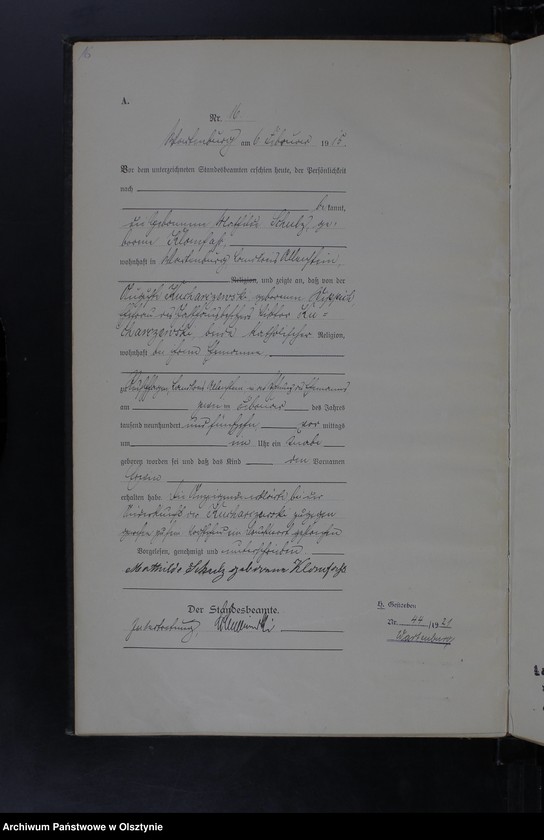 16
A.
Nr. 16
Wartenburg am 6. Februar 1915.
Vor dem unterzeichneten Standesbeamten erschien heute, der Persönlichkeit
nach
be kannt,
die Hebamme Mathilde Schulz, ge-
borene Klomfaß,
wohnhaft in Wartenburg Landkreis Allenstein,
Religion, und zeigte an, daß von der
Kucharzewski geborenen
Viktor Ku-
charzewski, beide katholischer Religion,
wohnhaft bei ihrem Ehemanne
zu Landkreis Allenstein in der Wohnung des Ehemanns
am Februar des Jahres
tausend neunhundert und fünfzehn vor mittags
um Uhr ein Knabe
geboren worden sei und daß das Kind den Vornamen
Erwin
erhalten habe. Die Anzeigende erklärte, bei der
Niederkunft der Kucharzewski zugegen
gewesen zu sein.
Vorgelesen, genehmigt und unterschrieben.
Mathilde Schulz geborene Klomfaß
Der Standesbeamte.
In Vertretung
H. Gestorben
Nr. 44/1921
Wartenburg
Archiwum Państwowe w Olsztynie